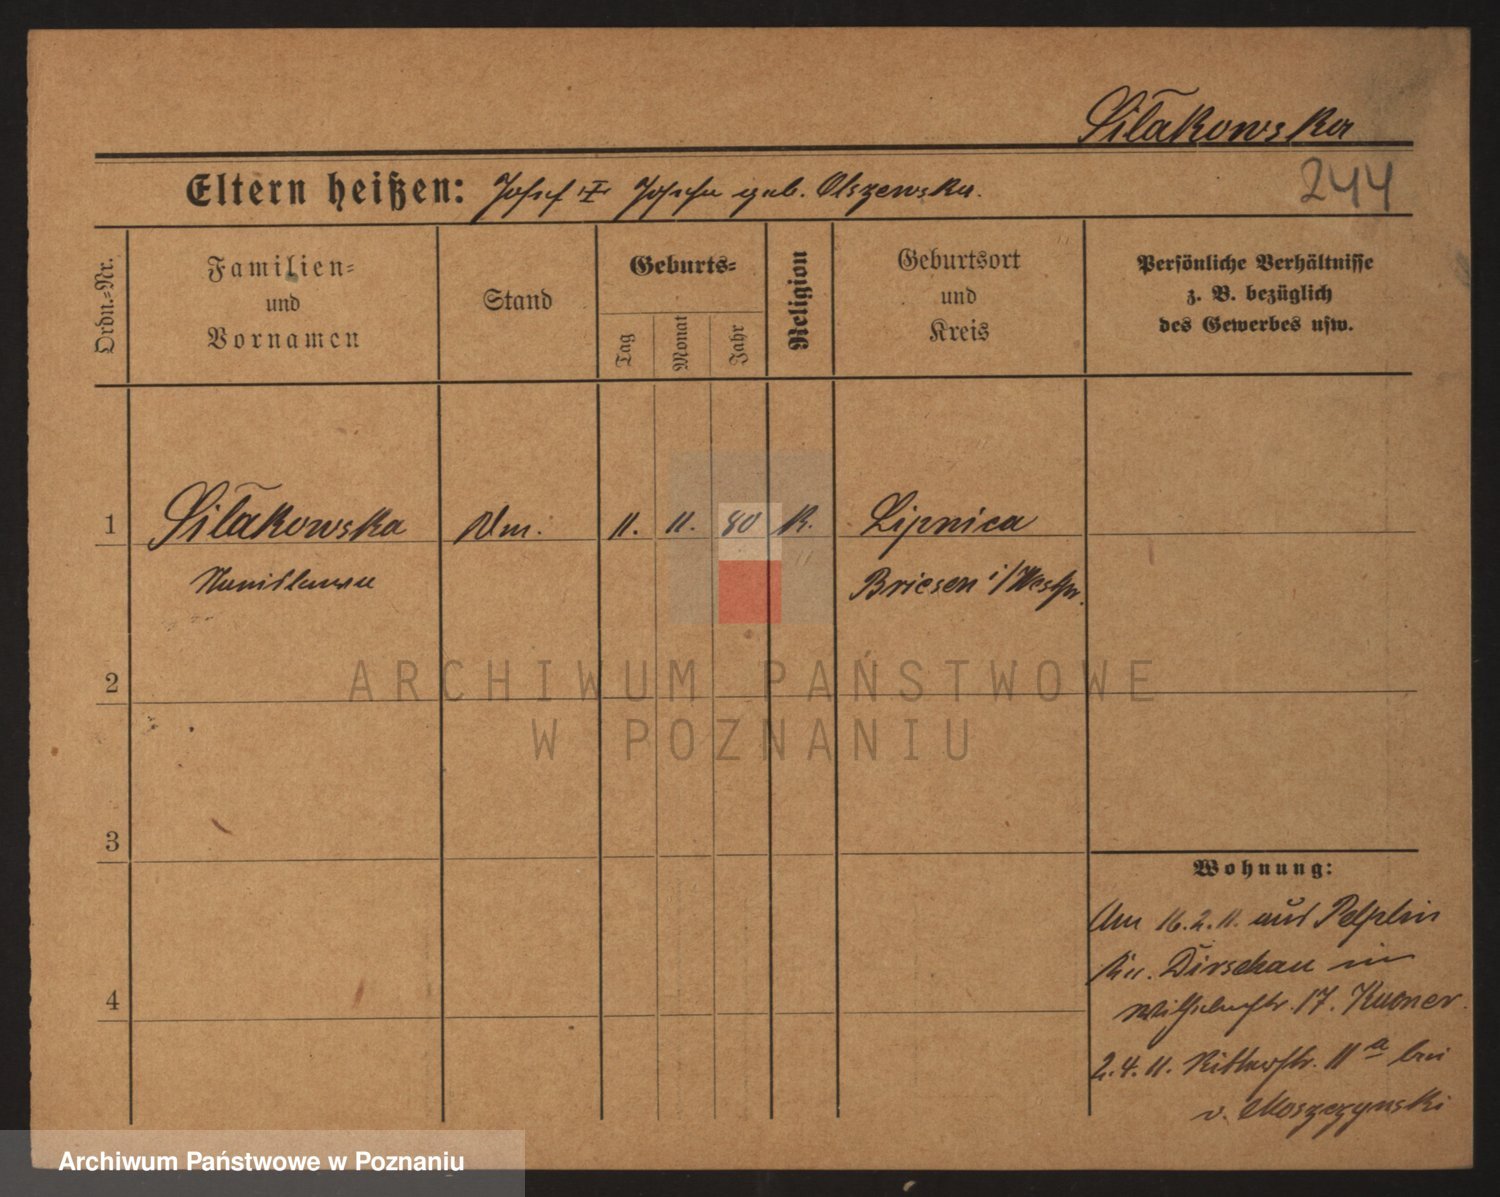 Silakowska
Eltern heißen: Josef Josefa geb. Olszewska.
244
Ordn.-Nr.
Familien-
und
Vornamen
Stand
Geburts-
Tag
Monat
Jahr
Religion
Geburtsort
und
Kreis
Persönliche Verhältnisse
z. B. bezüglich
des Gewerbes usw.
1
Silakowska
11. 11. K.
Lipnica
Stanislawa
Briesen i/Westpr.
2
3
4
Wohnung:
Am 16.2.11. aus Pelplin
Kr. Dirschau in
Wilhelmstr. 17.
2.4.11. Ritterstr. 11a bei
v. Moszczynski
ARCHIWUM PAŃSTWOWE
W POZNANIU
Archiwum Państwowe w Poznaniu